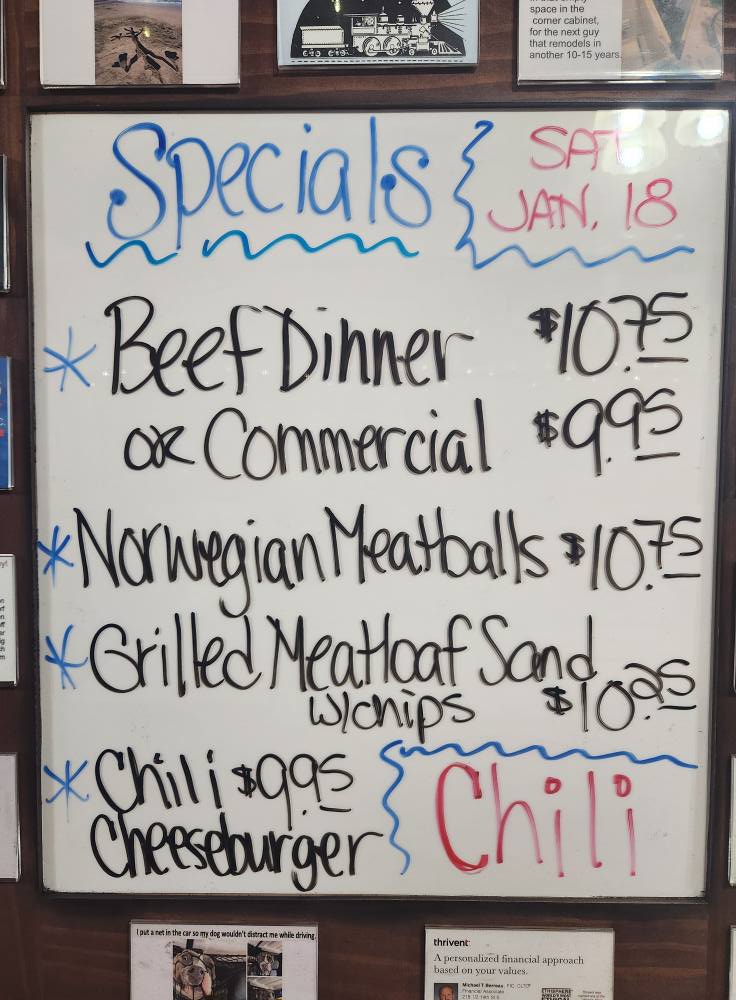 space in the
corner cabinet,
for the next guy
that remodels in
another 10-15 years.
Specials
SAT
JAN. 18
* Beef Dinner $10.75
or Commercial $9.95
* Norwegian Meatballs $10.75
* Grilled Meatloaf Sand.
w/chips $10.25
* Chili $9.95
Cheeseburger
Chili
I put a net in the car so my dog wouldn't distract me while driving.
thrivent
A personalized financial approach
based on your values.
Financial Associate